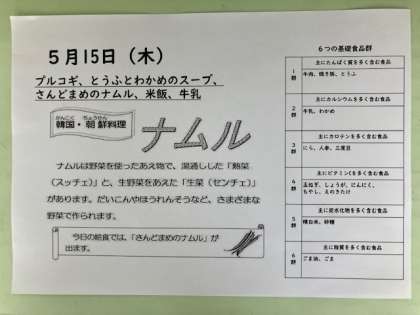 5月15日（木）
プルコギ、とうふとわかめのスープ、
さんどまめのナムル、米飯、牛乳
かんこく ちょうせん
韓国・朝鮮料理
ナムル
ナムルは野菜を使ったあえ物で、湯通しした「熟菜
（スッチェ）」と、生野菜をあえた「生菜（センチェ）」
があります。だいこんやほうれんそうなど、さまざまな
野菜で作られます。
今日の給食では、「さんどまめのナムル」が
出ます。
６つの基礎食品群
1群
主にたんぱく質を多く含む食品
牛肉、焼き豚、とうふ
2群
主にカルシウムを多く含む食品
牛乳、わかめ
3群
主にカロテンを多く含む食品
にら、人参、三度豆
4群
主にビタミンCを多く含む食品
玉ねぎ、しょうが、にんにく、
もやし、えのきたけ
5群
主に炭水化物を多く含む食品
精白米、砂糖
6群
主に脂質を多く含む食品
ごま油、ごま